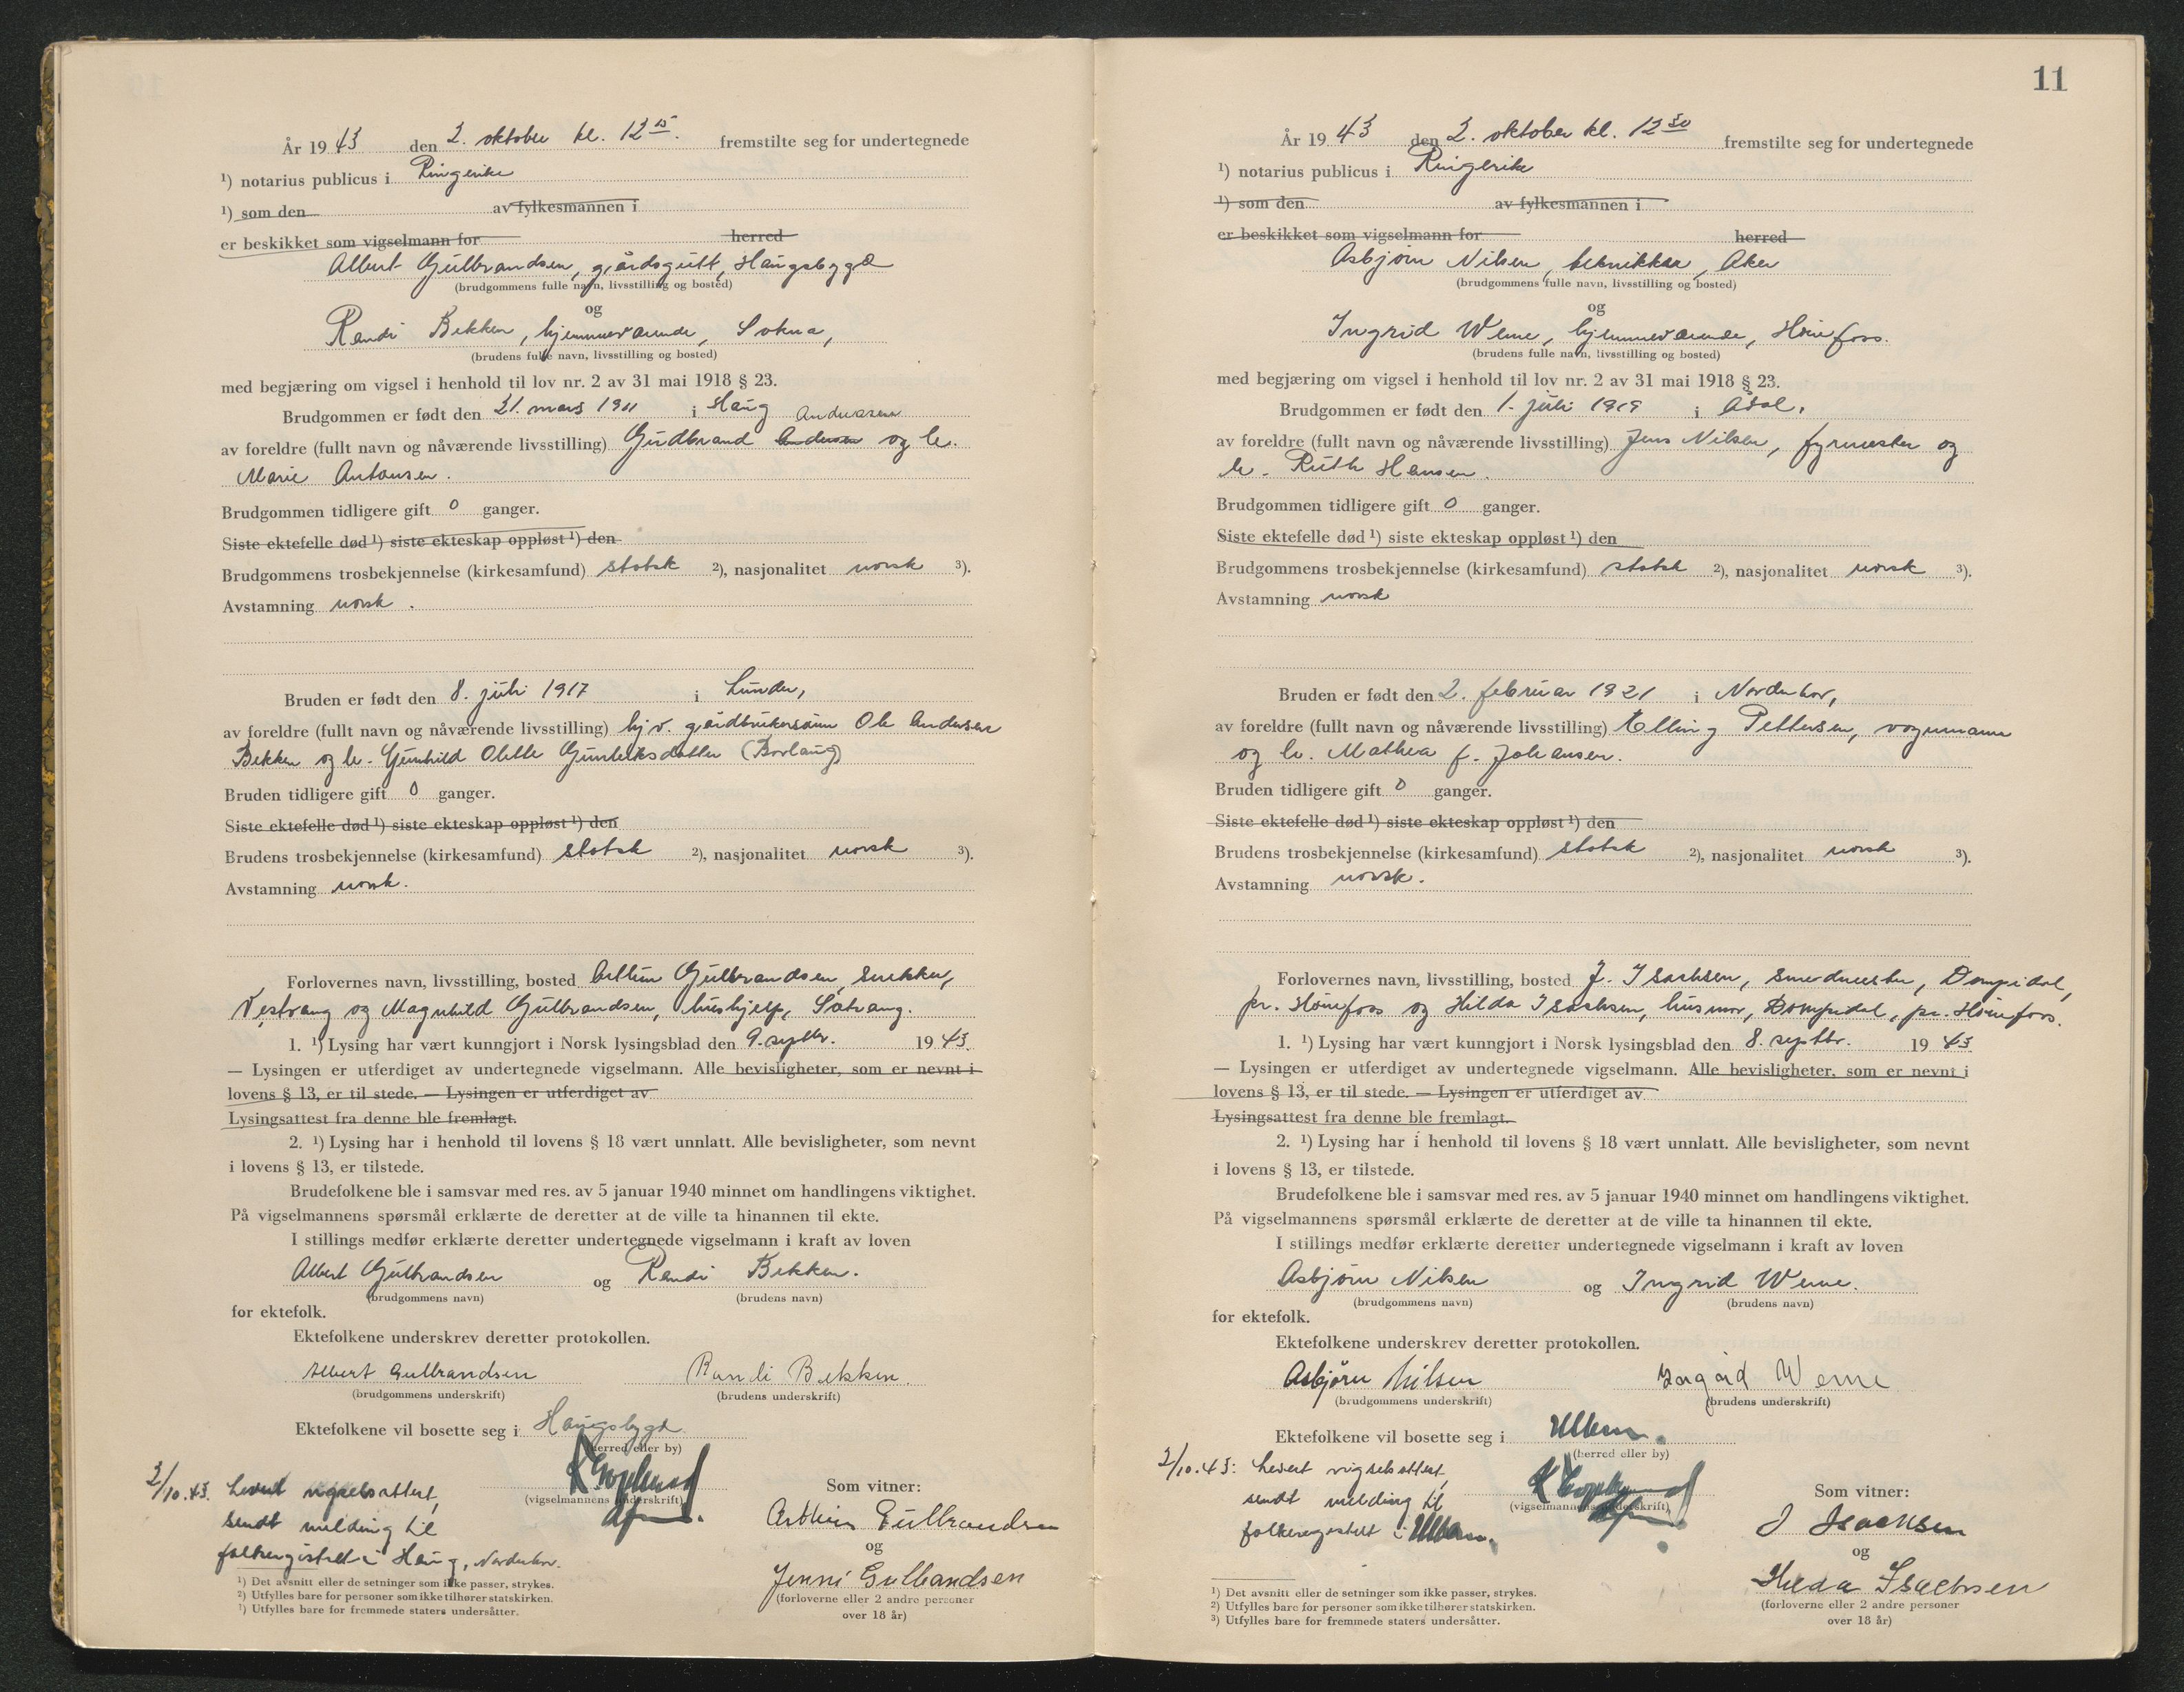 År 1943 den 2. oktober kl. 12 15. fremstilte seg for undertegnede
¹) notarius publicus i Ringerike
¹) som den av fylkesmannen i
er beskikket som vigselmann for herred
Albert Gulbrandsen, gårdsgutt, Haugsbygd
(brudgommens fulle navn, livsstilling og bosted)
og
Randi Bekken, hjemmeværende, Sokna,
(brudens fulle navn, livsstilling og bosted)
med begjæring om vigsel i henhold til lov nr. 2 av 31 mai 1918 § 23.
Brudgommen er født den 21. mars 1911 i Haug
Andreasen
av foreldre (fullt navn og nåværende livsstilling) Gudbrand Andersen og h.
Marie Antonsen.
Brudgommen tidligere gift 0 ganger.
Siste ektefelle død ¹) siste ekteskap oppløst ¹) den
Brudgommens trosbekjennelse (kirkesamfund) statsk ²), nasjonalitet norsk ³).
Avstamning norsk.
Bruden er født den 8. juli 1917 i Lunder,
av foreldre (fullt navn og nåværende livsstilling) hjv. gårdbrukersønn Ole Andersen
Bekken og h. Gunhild Olette Gunleiksdatter (Borlaug)
Bruden tidligere gift 0 ganger.
Siste ektefelle død ¹) siste ekteskap oppløst ¹) den
Brudens trosbekjennelse (kirkesamfund) statsk ²), nasjonalitet norsk ³).
Avstamning norsk.
Forlovernes navn, livsstilling, bosted Arthur Gulbrandsen, snekker,
Vestrang og Magnhild Gulbrandsen, hushjelp, Sørang.
1. ¹) Lysing har vært kunngjort i Norsk lysingsblad den 9. septbr. 1943.
— Lysingen er utferdiget av undertegnede vigselmann. Alle bevisligheter, som er nevnt i
lovens § 13, er til stede. — Lysingen er utferdiget av
Lysingsattest fra denne ble fremlagt.
2. ¹) Lysing har i henhold til lovens § 18 vært unnlatt. Alle bevisligheter, som nevnt
i lovens § 13, er tilstede.
Brudefolkene ble i samsvar med res. av 5 januar 1940 minnet om handlingens viktighet.
På vigselmannens spørsmål erklærte de deretter at de ville ta hinannen til ekte.
I stillings medfør erklærte deretter undertegnede vigselmann i kraft av loven
Albert Gulbrandsen og Randi Bekken.
(brudgommens navn) (brudens navn)
for ektefolk.
Ektefolkene underskrev deretter protokollen.
Albert Gulbrandsen Randi Bekken.
(brudgommens underskrift) (brudens underskrift)
Ektefolkene vil bosette seg i Haugsbygd
(herred eller by)
2/10.43. Levert vigselsattest,
sendt melding til
folkeregistret i Haug, Norderhov.
(vigselmannens underskrift)
Som vitner:
Arthur Gulbrandsen
og
Jenni Gulbrandsen
(forloverne eller 2 andre personer
over 18 år)
¹) Det avsnitt eller de setninger som ikke passer, strykes.
²) Utfylles bare for personer som ikke tilhører statskirken.
³) Utfylles bare for fremmede staters undersåtter.
11
År 1943 den 2. oktober kl. 12 30 fremstilte seg for undertegnede
¹) notarius publicus i Ringerike
¹) som den av fylkesmannen i
er beskikket som vigselmann for herred
Asbjørn Nilsen, tekniker, Aker
(brudgommens fulle navn, livsstilling og bosted)
og
Ingrid Werne, hjemmeværende, Hønefoss.
(brudens fulle navn, livsstilling og bosted)
med begjæring om vigsel i henhold til lov nr. 2 av 31 mai 1918 § 23.
Brudgommen er født den 1. juli 1919 i Ådal.
av foreldre (fullt navn og nåværende livsstilling) Jens Nilsen, fyrmester og
h. Ruth Hansen.
Brudgommen tidligere gift 0 ganger.
Siste ektefelle død ¹) siste ekteskap oppløst ¹) den
Brudgommens trosbekjennelse (kirkesamfund) statsk ²), nasjonalitet norsk ³).
Avstamning norsk
Bruden er født den 2. februar 1921 i Norderhov,
av foreldre (fullt navn og nåværende livsstilling) Elling Pettersen, vognmann
og h. Mathea f. Johansen.
Bruden tidligere gift 0 ganger.
Siste ektefelle død ¹) siste ekteskap oppløst ¹) den
Brudens trosbekjennelse (kirkesamfund) statsk ²), nasjonalitet norsk ³).
Avstamning norsk.
Forlovernes navn, livsstilling, bosted J. Isachsen, smedmester, Dompidal,
pr. Hønefoss og Hilda Isachsen, husmor, Dompidal, pr. Hønefoss.
1. ¹) Lysing har vært kunngjort i Norsk lysingsblad den 8. septbr. 1943
— Lysingen er utferdiget av undertegnede vigselmann. Alle bevisligheter, som er nevnt i
lovens § 13, er til stede. — Lysingen er utferdiget av
Lysingsattest fra denne ble fremlagt.
2. ¹) Lysing har i henhold til lovens § 18 vært unnlatt. Alle bevisligheter, som nevnt
i lovens § 13, er tilstede.
Brudefolkene ble i samsvar med res. av 5 januar 1940 minnet om handlingens viktighet.
På vigselmannens spørsmål erklærte de deretter at de ville ta hinannen til ekte.
I stillings medfør erklærte deretter undertegnede vigselmann i kraft av loven
Asbjørn Nilsen og Ingrid Werne.
(brudgommens navn) (brudens navn)
for ektefolk.
Ektefolkene underskrev deretter protokollen.
Asbjørn Nilsen Ingrid Werne
(brudgommens underskrift) (brudens underskrift)
Ektefolkene vil bosette seg i
(herred eller by)
2/10.43: Levert vigselsattest,
sendt melding til
folkeregistret i
(vigselmannens underskrift)
Som vitner:
J Isachsen
og
Hilda Isachsen
(forloverne eller 2 andre personer
over 18 år)
¹) Det avsnitt eller de setninger som ikke passer, strykes.
²) Utfylles bare for personer som ikke tilhører statskirken.
³) Utfylles bare for fremmede staters undersåtter.